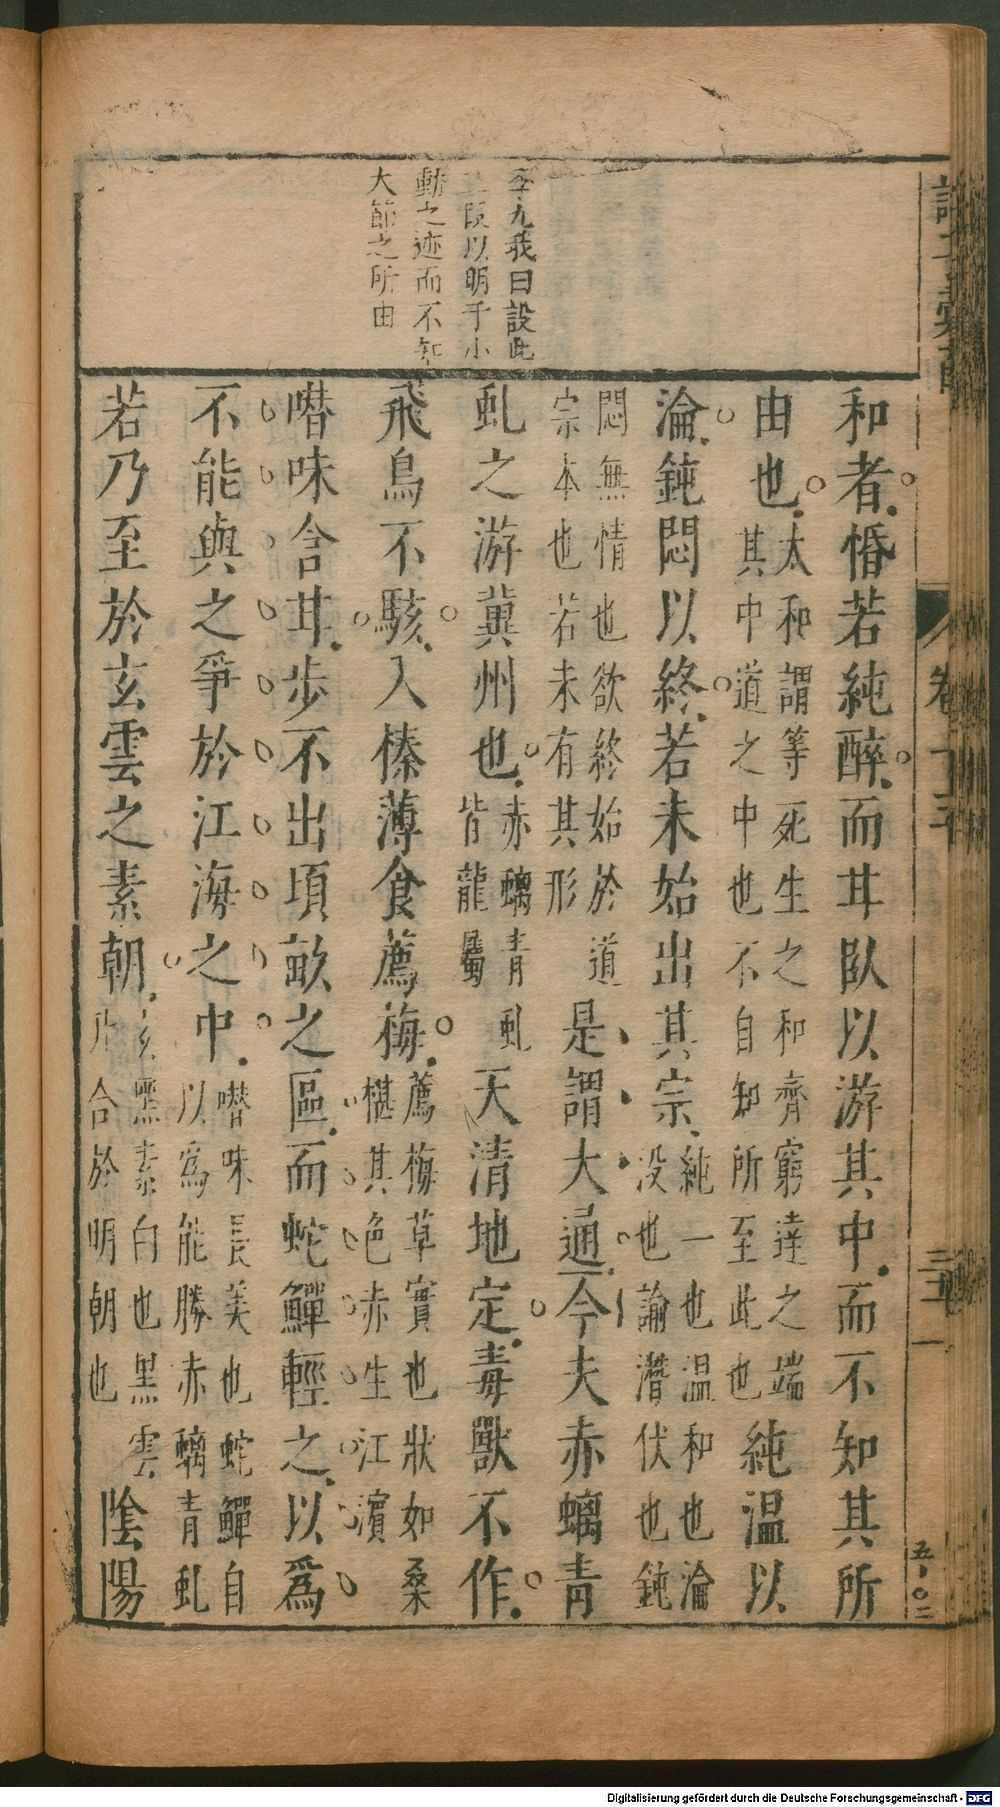 李九我曰設此
叚以明于小
動之迹而不知
大節之所由
和者惛若純醉而甘臥以游其中而不知其所
由也太和謂等死生之和齊窮達之端
其中道之中也不自知所至此也純温以
淪鈍悶以終若未始出其宗純一也温和也淪
没也論潛伏也鈍
悶無情也欲終始於道
宗本也若未有其形是謂大通今夫赤螭青
虬之游冀州也赤螭青虬
皆龍屬天清地定毒獸不作
飛鳥不駭入榛薄食薦梅薦梅草實也狀如桑
椹其色赤生江濵
噆味含甘步不出頃畝之區而蛇鱓輕之以爲
不能與之爭於江海之中噆味長美也蛇鱓自
以爲能勝赤螭青虬
若乃至於玄雲之素朝玄黑素白也黑雲
乃合於明朝也陰陽
Digitalisierung gefördert durch die Deutsche Forschungsgemeinschaft - DFG